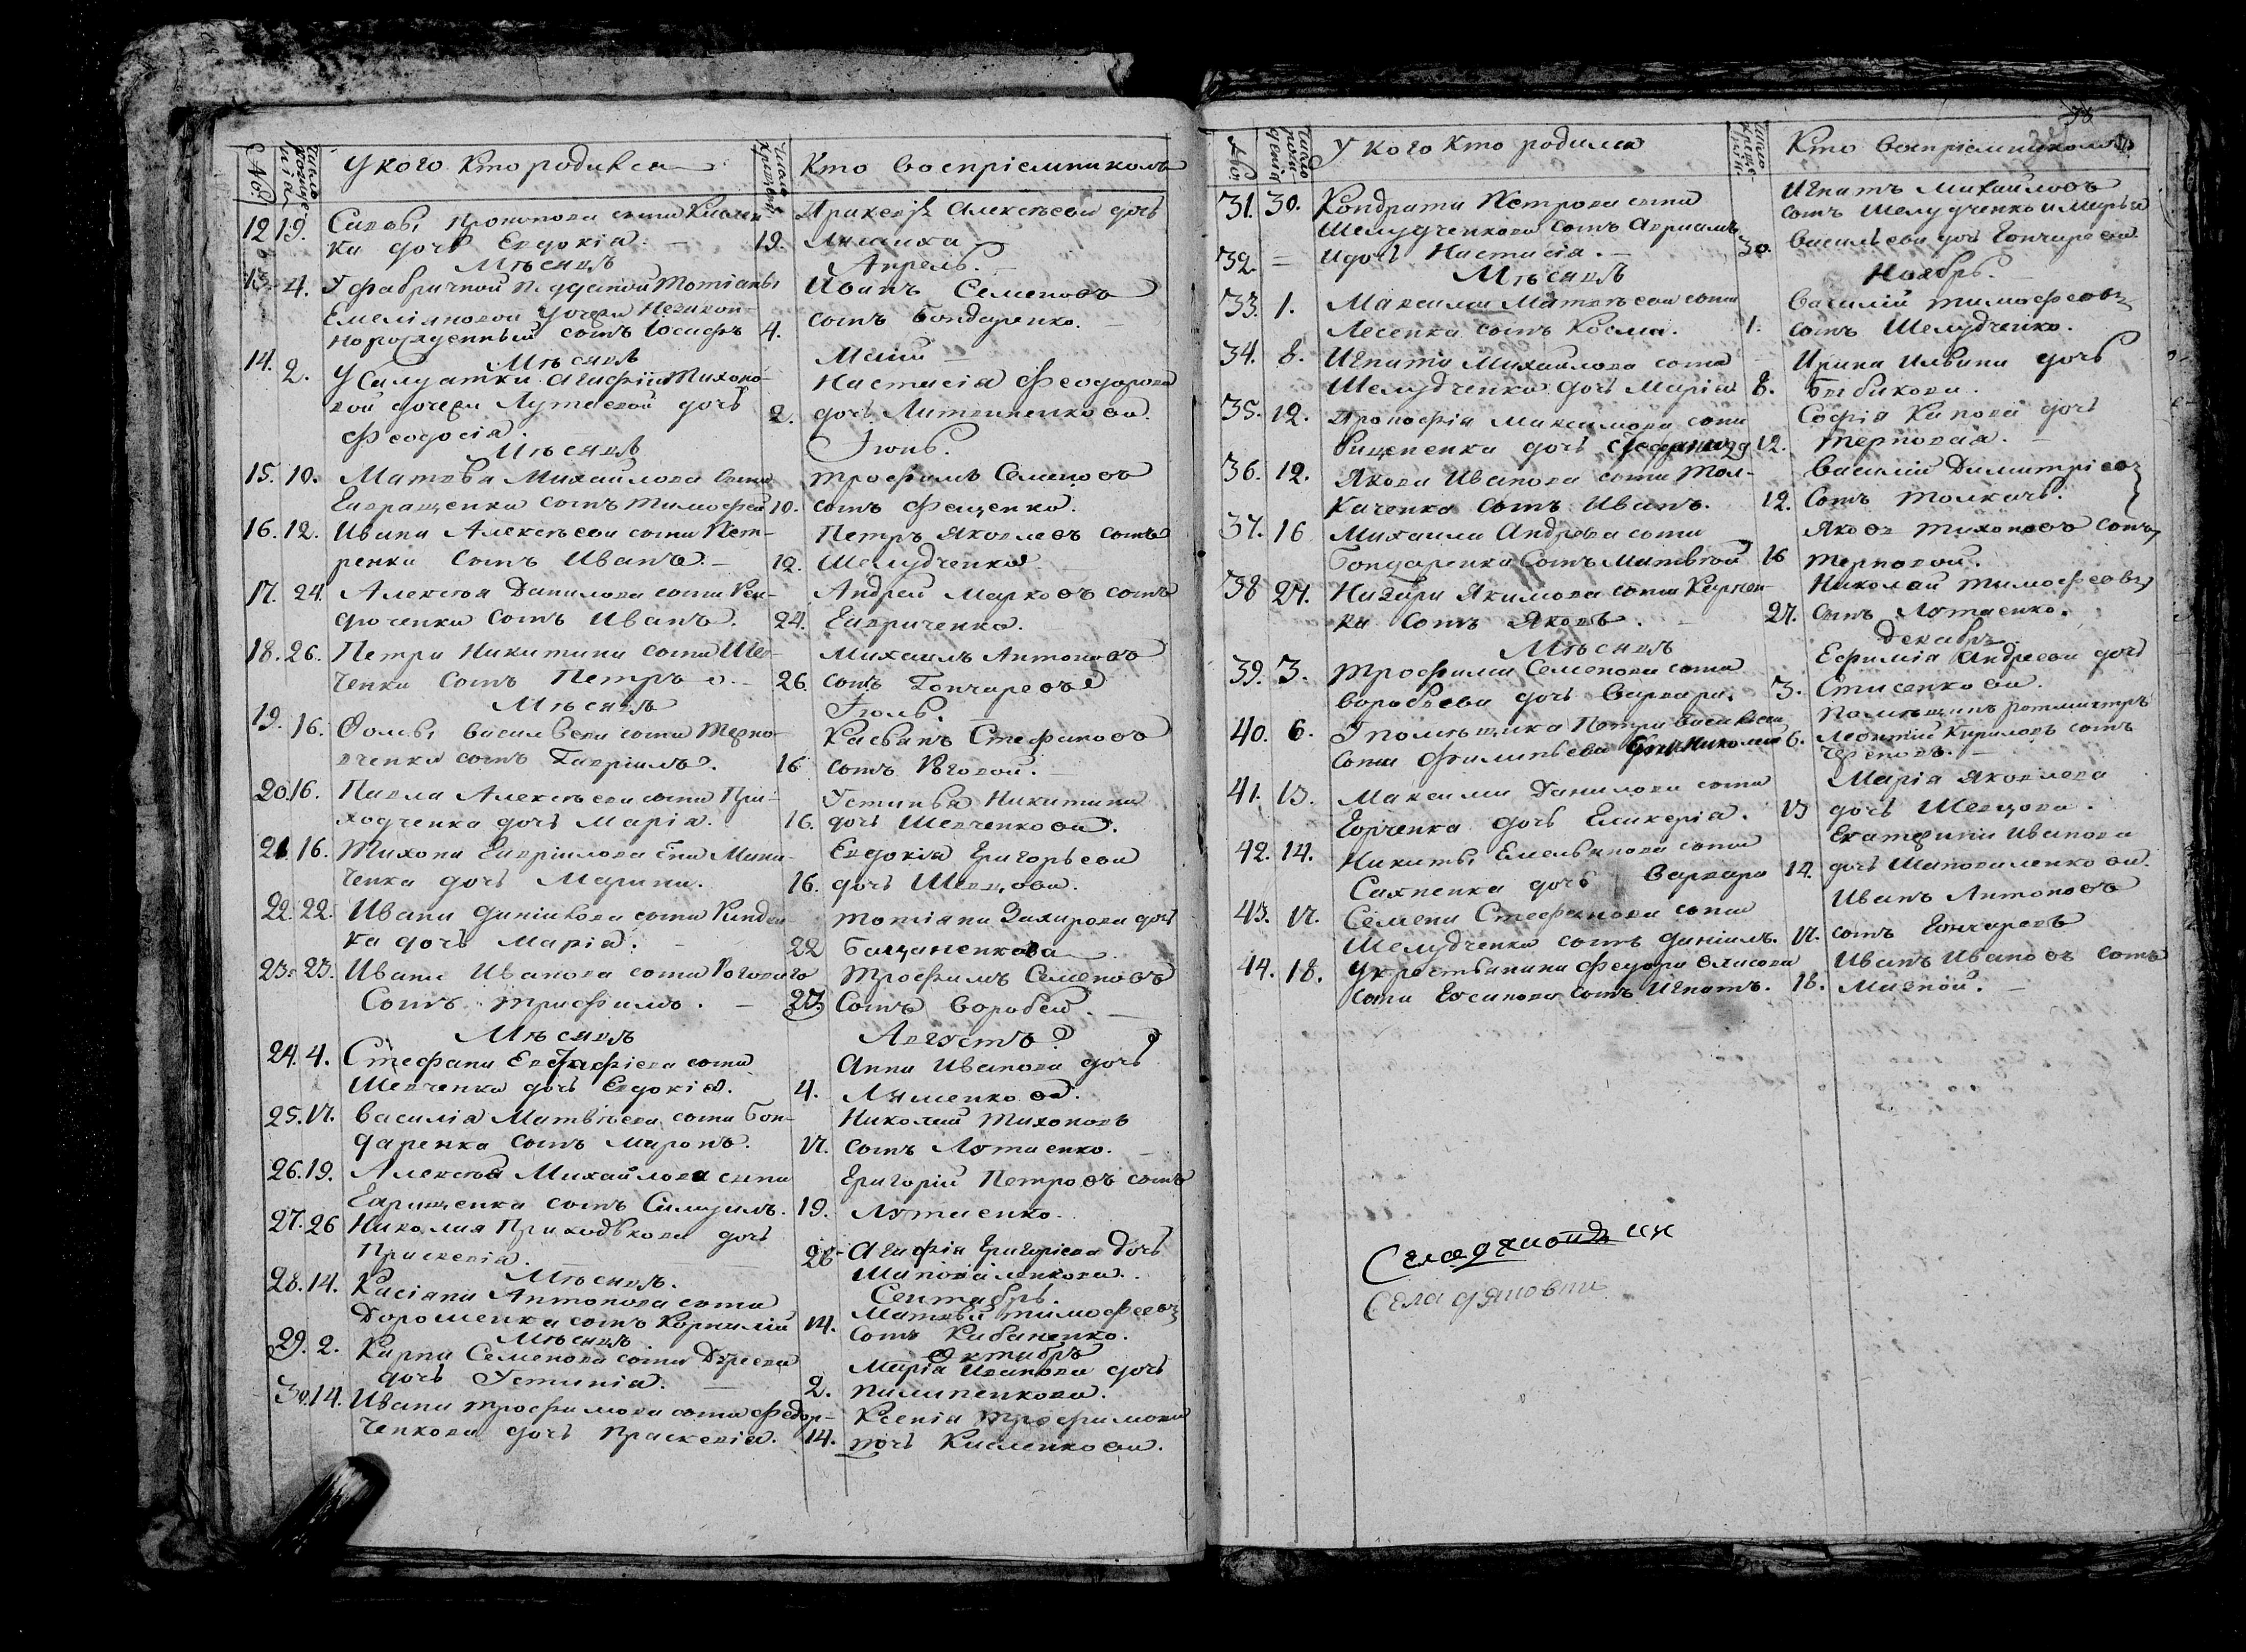 №
Число рожденія
У кого кто родился
Число крещенія
Кто воспріемникомъ
12 19. Саввы Прокопова сына Кислен
ка дочь Евдокія. 19.
Параскевія Алексѣева дочь
Мѣсяцъ Апрель.
13. 4. У фабричной Татіаны
Емеліяновой дочери Незакон-
норожденный сынъ Іосифъ 4.
Иванъ Семеновъ
сынъ Бондаренко.
Мѣсяцъ Маій
14. 2. У Салдатки Агафіи Тихоно-
вой дочери Лутаевой дочь
Феодосія. 2.
Настасія Феодорова
дочь Литвиненкова.
Мѣсяцъ Іюнь.
15. 10. Матвѣя Михайлова сына
Гавращенка сынъ Тимофей 10.
Трофимъ Семеновъ
сынъ Фещенко.
16. 12. Ивана Алексѣева сына Пет-
ренка сынъ Иванъ. 12.
Петръ Яковлевъ сынъ
Шелудченко.
17. 24. Алексѣя Данилова сына
сынъ Иванъ. 24.
Андрей Марковъ сынъ
Гавриченко.
18. 26. Петра Никитина сына Шев-
ченка сынъ Петръ. 26.
Михаилъ Антоновъ
сынъ Гончаревъ
Мѣсяцъ Іюль.
19. 16. Фомы Васильева сына Терно-
вченка сынъ Гавріилъ. 16
Касьянъ Стефановъ
сынъ Роговой.
20. 16. Павла Алексѣева сына При-
ходченка дочь Марія. 16.
Устинья Никитина
дочь Шевченкова.
21. 16. Тихона Гавріилова сна Мина-
ченка дочь Марина. 16.
Евдокія Григорьева
дочь Шевцова.
22. 22. Ивана Даніилова сына
ка дочь Марія. 22
Татіана Захарова дочь
23. 23. Ивана Иванова сына Роговаго
Сынъ Трофимъ. 23.
Трофимъ Семеновъ
Сынъ Воробей.
Мѣсяцъ Августъ
24. 4. Стефана сына
Шевченка дочь Евдокія. 4.
Анна Иванова дочь
Ляшенкова.
25. 17. Василія Матвѣева сына Бон-
даренка сынъ Миронъ. 17.
Николай Тихоновъ
сынъ Лутаенко.
26. 19. Алексѣя Михайлова сына
Гаращенка сынъ Самуилъ. 19.
Григорій Петровъ сынъ
Лутаенко.
27. 26 Николая Приходькова дочь
Праскевія. 26
Агафія Григоріева дочь
Шаповаленкова.
Мѣсяцъ. Сентябрь.
28. 14. Касіана Антонова сына
Дорошенка сынъ Корнилій 14.
Матвѣй Тимофеевъ
сынъ Кабаненко.
Мѣсяцъ Октябрь
29. 2. Карпа Семенова сына
дочь Устинія. 2.
Марія Иванова дочь
Пилипенкова.
30. 14. Ивана Трофимова сына Федор-
ченкова дочь Праскевія. 14.
Ксенія Трофимова
дочь Кисленкова.
№
Число рожденія
У кого кто родился
Число крещенія
Кто воспріемникомъ
31. 30. Кондрата Петрова сына
Шелудченкова сынъ Авраамъ
32. = и дочь Настасія. 30.
Игнатъ Михайловъ
сынъ Шелудченко и Марья
Васильева дочь Гончарева
Мѣсяцъ Ноябрь.
33. 1. Максима Матвѣева сына
Лесенка сынъ Косма. 1.
Василій Тимофеевъ
сынъ Шелудченко.
34. 8. Игната Михайлова сына
Шелудченка дочь Марія 8.
Ирина Ильина дочь
Бабикова.
35. 12. Прокофія Максимова сына
дочь 12.
Софія Карпова дочь
Терновая.
36. 12. Якова Иванова сына Тол-
каченка сынъ Иванъ. 12.
Василій Димитріевъ
Сынъ Толкачъ.
37. 16 Михаила Андреева сына
Бондаренка сынъ Матвѣй 16
Яковъ Тихоновъ сынъ
Терновой.
38 27. Назара Якимова сына Карпен-
ка сынъ Яковъ. 27.
Николай Тимофеевъ
сынъ Лутаенко.
Мѣсяцъ Декабрь.
39. 3. Трофима Семенова сына
Воробьева дочь Варвара. 3.
Ефимія Андреева дочь
Стасенкова.
40. 6. У помѣщика Петра Васильева
сына Филипьева сынъ Николай 6.
Помѣщикъ ротмистръ
Леонтій Кириловъ сынъ
41. 13. Максима Данилова сына
Горченка дочь Гликерія. 13
Марія Яковлева
дочь Шевцова.
42. 14. Никиты Емельянова сына
Сахненка дочь Варвара 14.
Екатерина Иванова
дочь Шаповаленкова.
43. 17. Семена Стефанова сына
Шелудченка сынъ Даніилъ. 17.
Иванъ Антоновъ
сынъ Гончаревъ
44. 18. У крестьянина Федора
сына сынъ Игнатъ. 18.
Иванъ Ивановъ сынъ